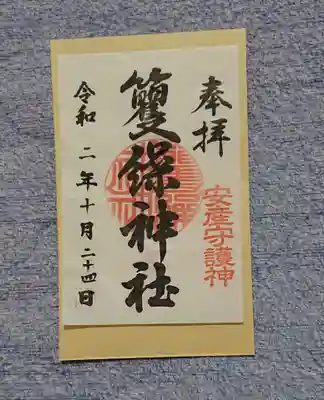 奉拝
安産守護神
籆保神社
令和二年十月二十四日